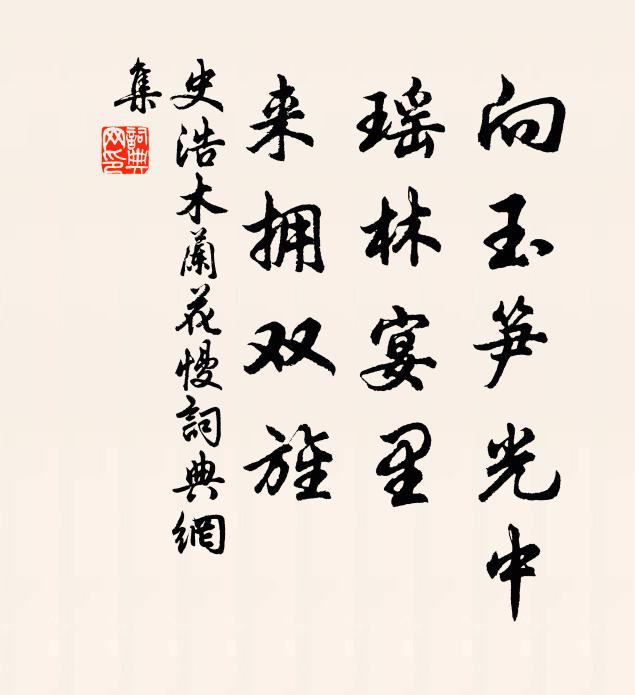 向玉笋光中
瑶林宴里
来拥双旌
史浩木蘭花慢詞典網
集
詞典
网印